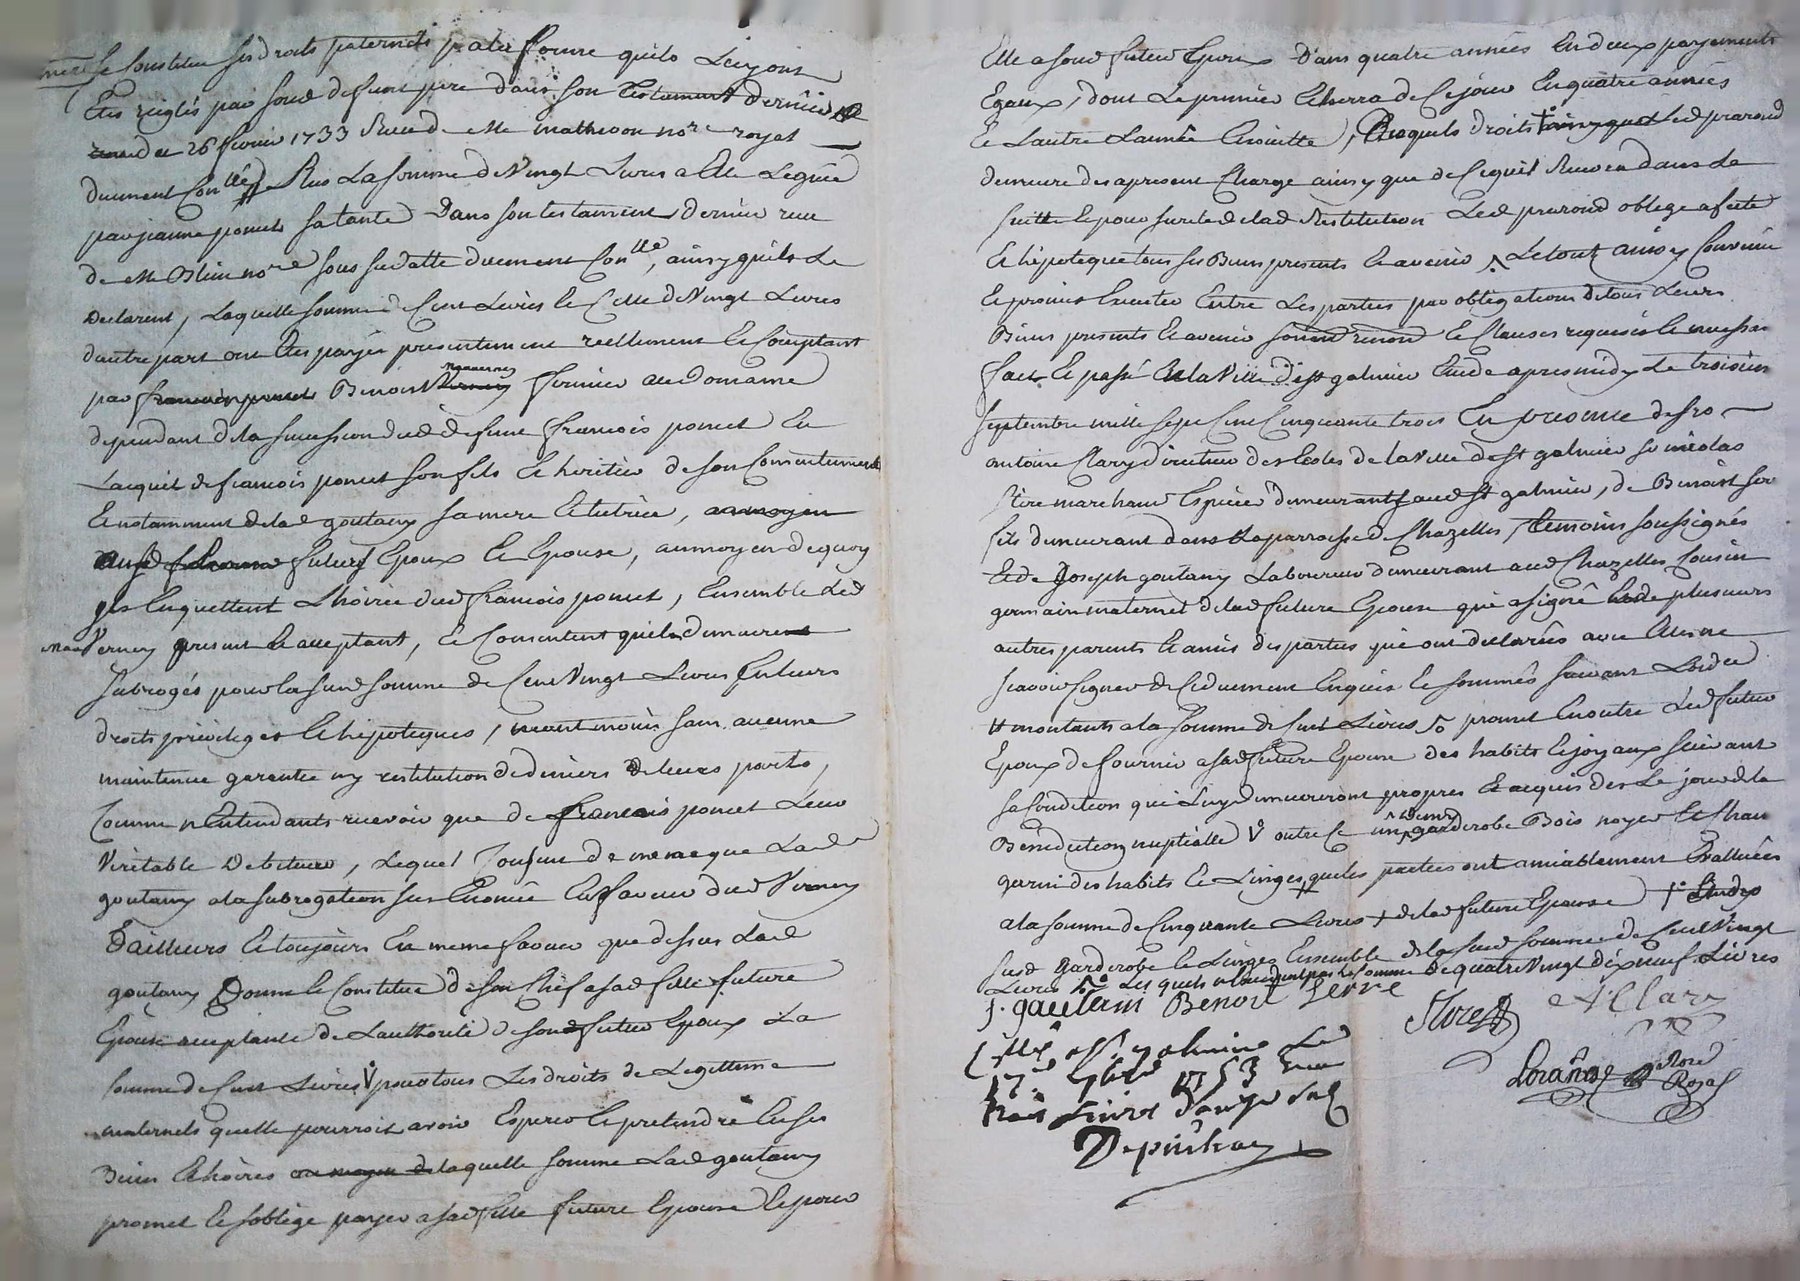 mere se Constitue ses droits paternels pates forme quils Luy ont
Etes reiglés par soud defunt pere dans son testament dernier
du 26 fevrier 1733 Receu de Me mathevon nore royal
duement Conllé Plus La somme de Vingt Livres a Elle Leguée
par jeanne poncet sa tante dans son testament dernier receu
de Me Blein nore sous sa datte duement Conllé, ainsy quils Le
declarent, Laquelle somme de Cent Livres et Celle de Vingt Livres
dautre part ont Etes payés presentement reellement Et Comptant
par Benoist Verney fermier aud domaine
dependant de la succession dud defunt françois poncet En
Lacquit de francois poncet son fils Et heritier de son Consentement
Et notamment de lad goutany sa mere Et tutrice, au moyen
futurs Epoux Et Epouse, au moyen dequoy
ils En quittent L'hoirie dud francois poncet, Ensemble Led
Verney present Et acceptant, Et Consentent quil demeure
subrogés pour lasusd somme de Cent Vingt Livres En leurs
droits privileges Et hipoteques, neantmoins sans aucune
maintenue garantie ny restitution de deniers de leurs parts,
Comme n Entendants recevoir que de francois poncet Leur
Veritable debiteur, Lequel Consent de meme que Lad
goutany a la subrogation sus Enoncée En faveur dud Verney
D'ailleurs Et toujours En meme faveur que dessus Lad
goutany Donne Et Constitue de son Chef a sad fille future
Epouse acceptante de Lauthorité de soud futur Epoux La
somme de Cent Livres V pour tous Les droits de Legittime
maternels quelle pourroit avoir Esperer Et pretendre En ses
Biens Et hoiries au moyen de laquelle somme Lad goutany
promet Et soblige payer a sad fille future Epouse Et pour
Elle a soud futur Epoux Dans quatre années En deux payements
Egaux, dont Le premier Echerra de Ce jour En quatre années
Et Lautre Lannée Ensuitte, Desquels droits ainsy que Led prarond
demeure des apresent Chargé ainsy que de Cequil Recevra dans La
suitte Et pour sureté de lad Restitution Led prarond oblige afecte
Et hipoteque tous ses Biens presents Et avenir, Le tout ainsy Convenu
Et promis Executer Entre Les parties par obligations de tous Leurs
Biens presents Et avenir Et Clauses requises Et necessres
fait Et passé En la Ville de st galmier Etude apres midy Le troisieme
septembre mille sept Cent Cinquante trois En presence de sr
antoine Clary directeur des Ecoles de la Ville de st galmier sr nicolas
marchand Epicier demeurants aud st galmier, de Benoist ser
fils demeurant dans La parroisse de Chazelles, temoins soussignés
Et de Joseph goutany Laboureur demeurant aud Chazelles Cousin
germain maternel de lad future Epouse qui a signé plusieurs
autres parents Et amis des parties qui ont declarés avec Elles ne
scavoir signer de Ce duement Enquis Et sommés suivant L'ordce
V montants a la somme de Cent Livres promet En outre Led futur
Epoux de fournir a sad future Epouse des habits Et joyaux suivant
sa Condition qui Luy demeureront propres Et acquis des Le jour de la
Benediction nuptialle V outre Ce une garderobe Bois noyer Et
garni des habits Et Linges que les parties ont amiablement Evalluées
a la somme de Cinquante Livres + de lad future Epouse
susd garderobe Et Linges Ensemble de la susd somme de Cent Vingt
Livres Les quels somme de quatre Vingt dix neuf Livres
J. gautani Benoit Serre
A Clary
Clé a st galmier Le
17e 7bre 1753 Receu
trois Livres
Depuihay
Royal